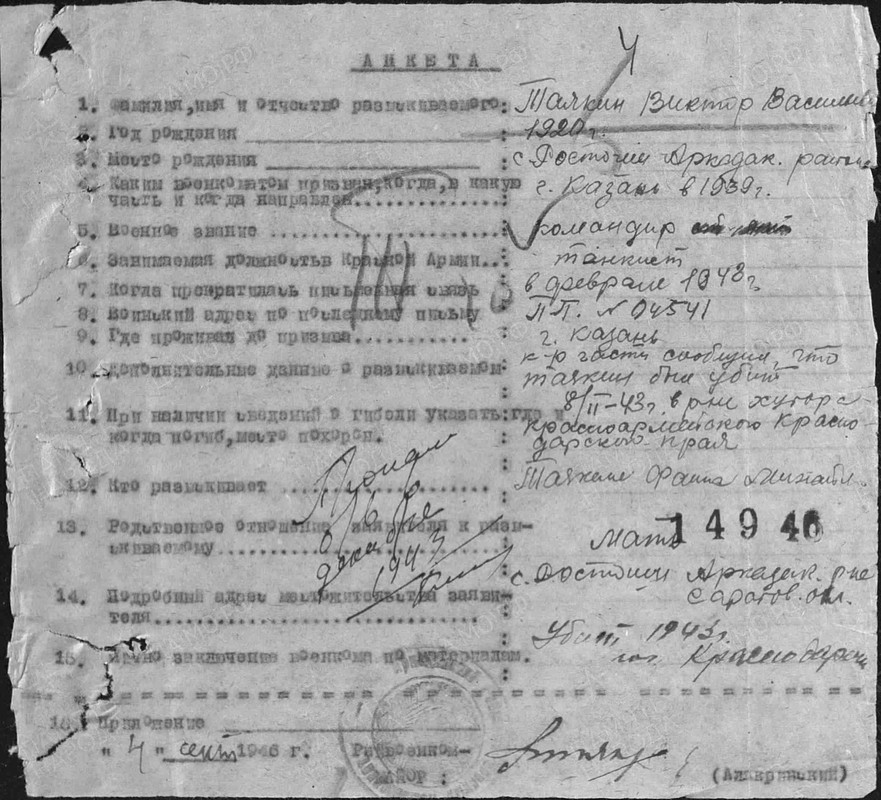 АНКЕТА
4
1. Фамилия, имя и отчество разыскиваемого: Таякин Виктор Василье
2. Год рождения : 1920 г.
3. Место рождения : с. Ростоши Аркадак. района
4. Каким военкоматом призван, когда, в какую : г. Казань в 1939 г.
часть и когда направлен............... :
5. Военное звание ...................... : командир
6. Занимаемая должность в Красной Армии.. : танкист
7. Когда прекратилась письменная связь : в феврале 1943 г.
8. Воинский адрес по последнему письму : П.П. № 04541
9. Где проживал до призыва............ : г. Казань
10. Дополнительные данные о разыскиваемом : к-р части сообщил, что
Таякин был убит
11. При наличии сведений о гибели указать: где и : 8/II-43 г. в р-не хутора
когда погиб, место похорон. : Красноармейского Красно-
дарского края
12. Кто разыскивает .................... : Таякина
13. Родственное отношение заявителя к разы- : мать
скиваемому........................ :
14946
декабре
1943
14. Подробный адрес местожительства заяви- : с. Ростоши Аркадак. р-не
теля............................... : Саратов. обл.
15. Ясно заключение военкома по материалам. : Убит 1943 г.
16. Приложение
" 4 " сент 1946 г. Райвоенком-
МАЙОР :
(Алякринский)